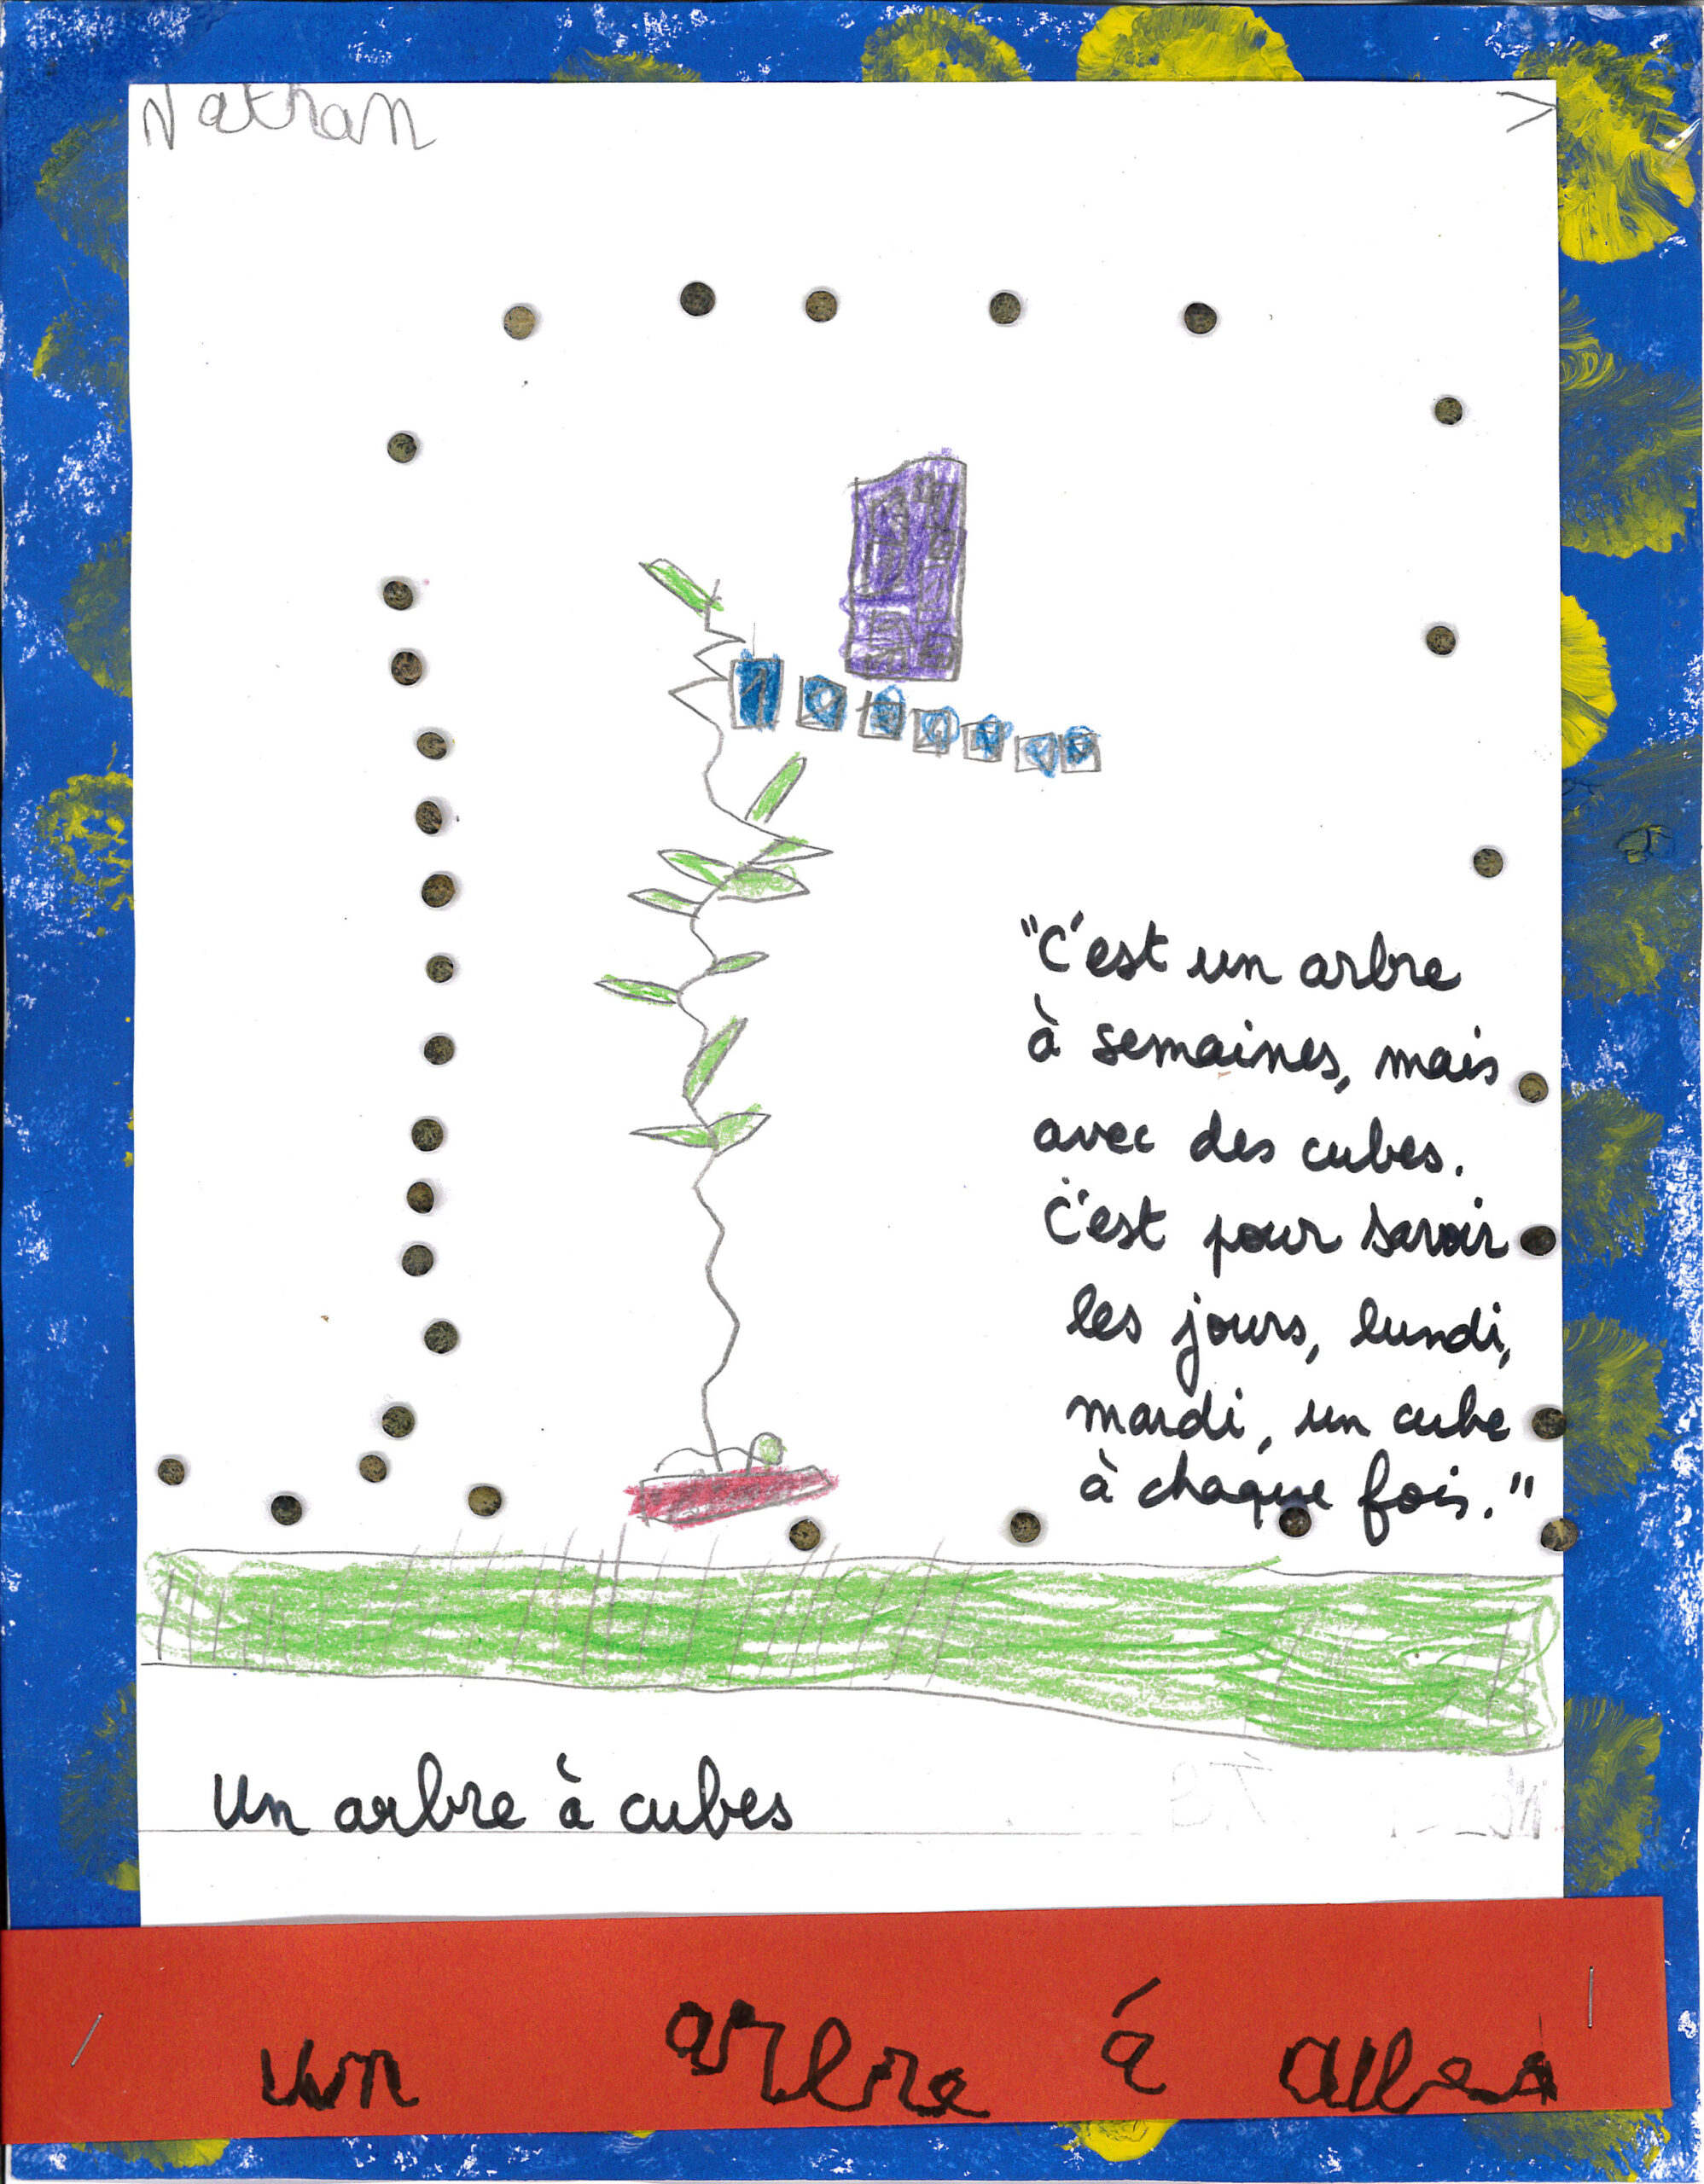 Nathan
"C'est un arbre
à semaines, mais
avec des cubes.
C'est pour savoir
les jours, lundi,
mardi, un cube
à chaque fois."
Un arbre à cubes
un arbre á cubes